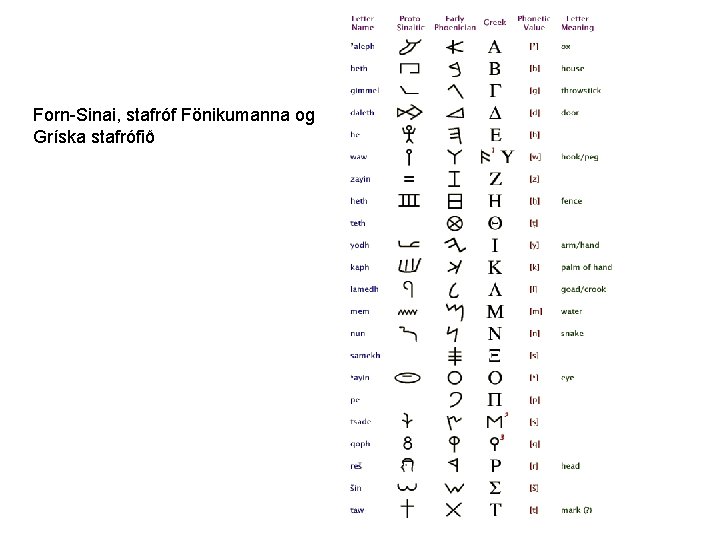 Forn-Sinai, stafróf Fönikumanna og
Gríska stafrófið
Letter Name Proto Sinaitic Early Phoenician Greek Phonetic Value Letter Meaning
ʾaleph Α [ʾ] ox
beth Β [b] house
gimmel Γ [g] throwstick
daleth Δ [d] door
he Ε [h]
waw 1 Υ [w] hook/peg
zayin Ζ [z]
heth Η [ḥ] fence
teth Θ [ṭ]
yodh Ι [y] arm/hand
kaph Κ [k] palm of hand
lamedh Λ [l] goad/crook
mem Μ [m] water
nun Ν [n] snake
samekh Ξ [s]
ʿayin Ο [ʿ] eye
pe Π [p]
tsade Μ [ṣ]
qoph Ϙ 3 [q]
reš Ρ [r] head
šin Σ [š]
taw Τ [t] mark (?)